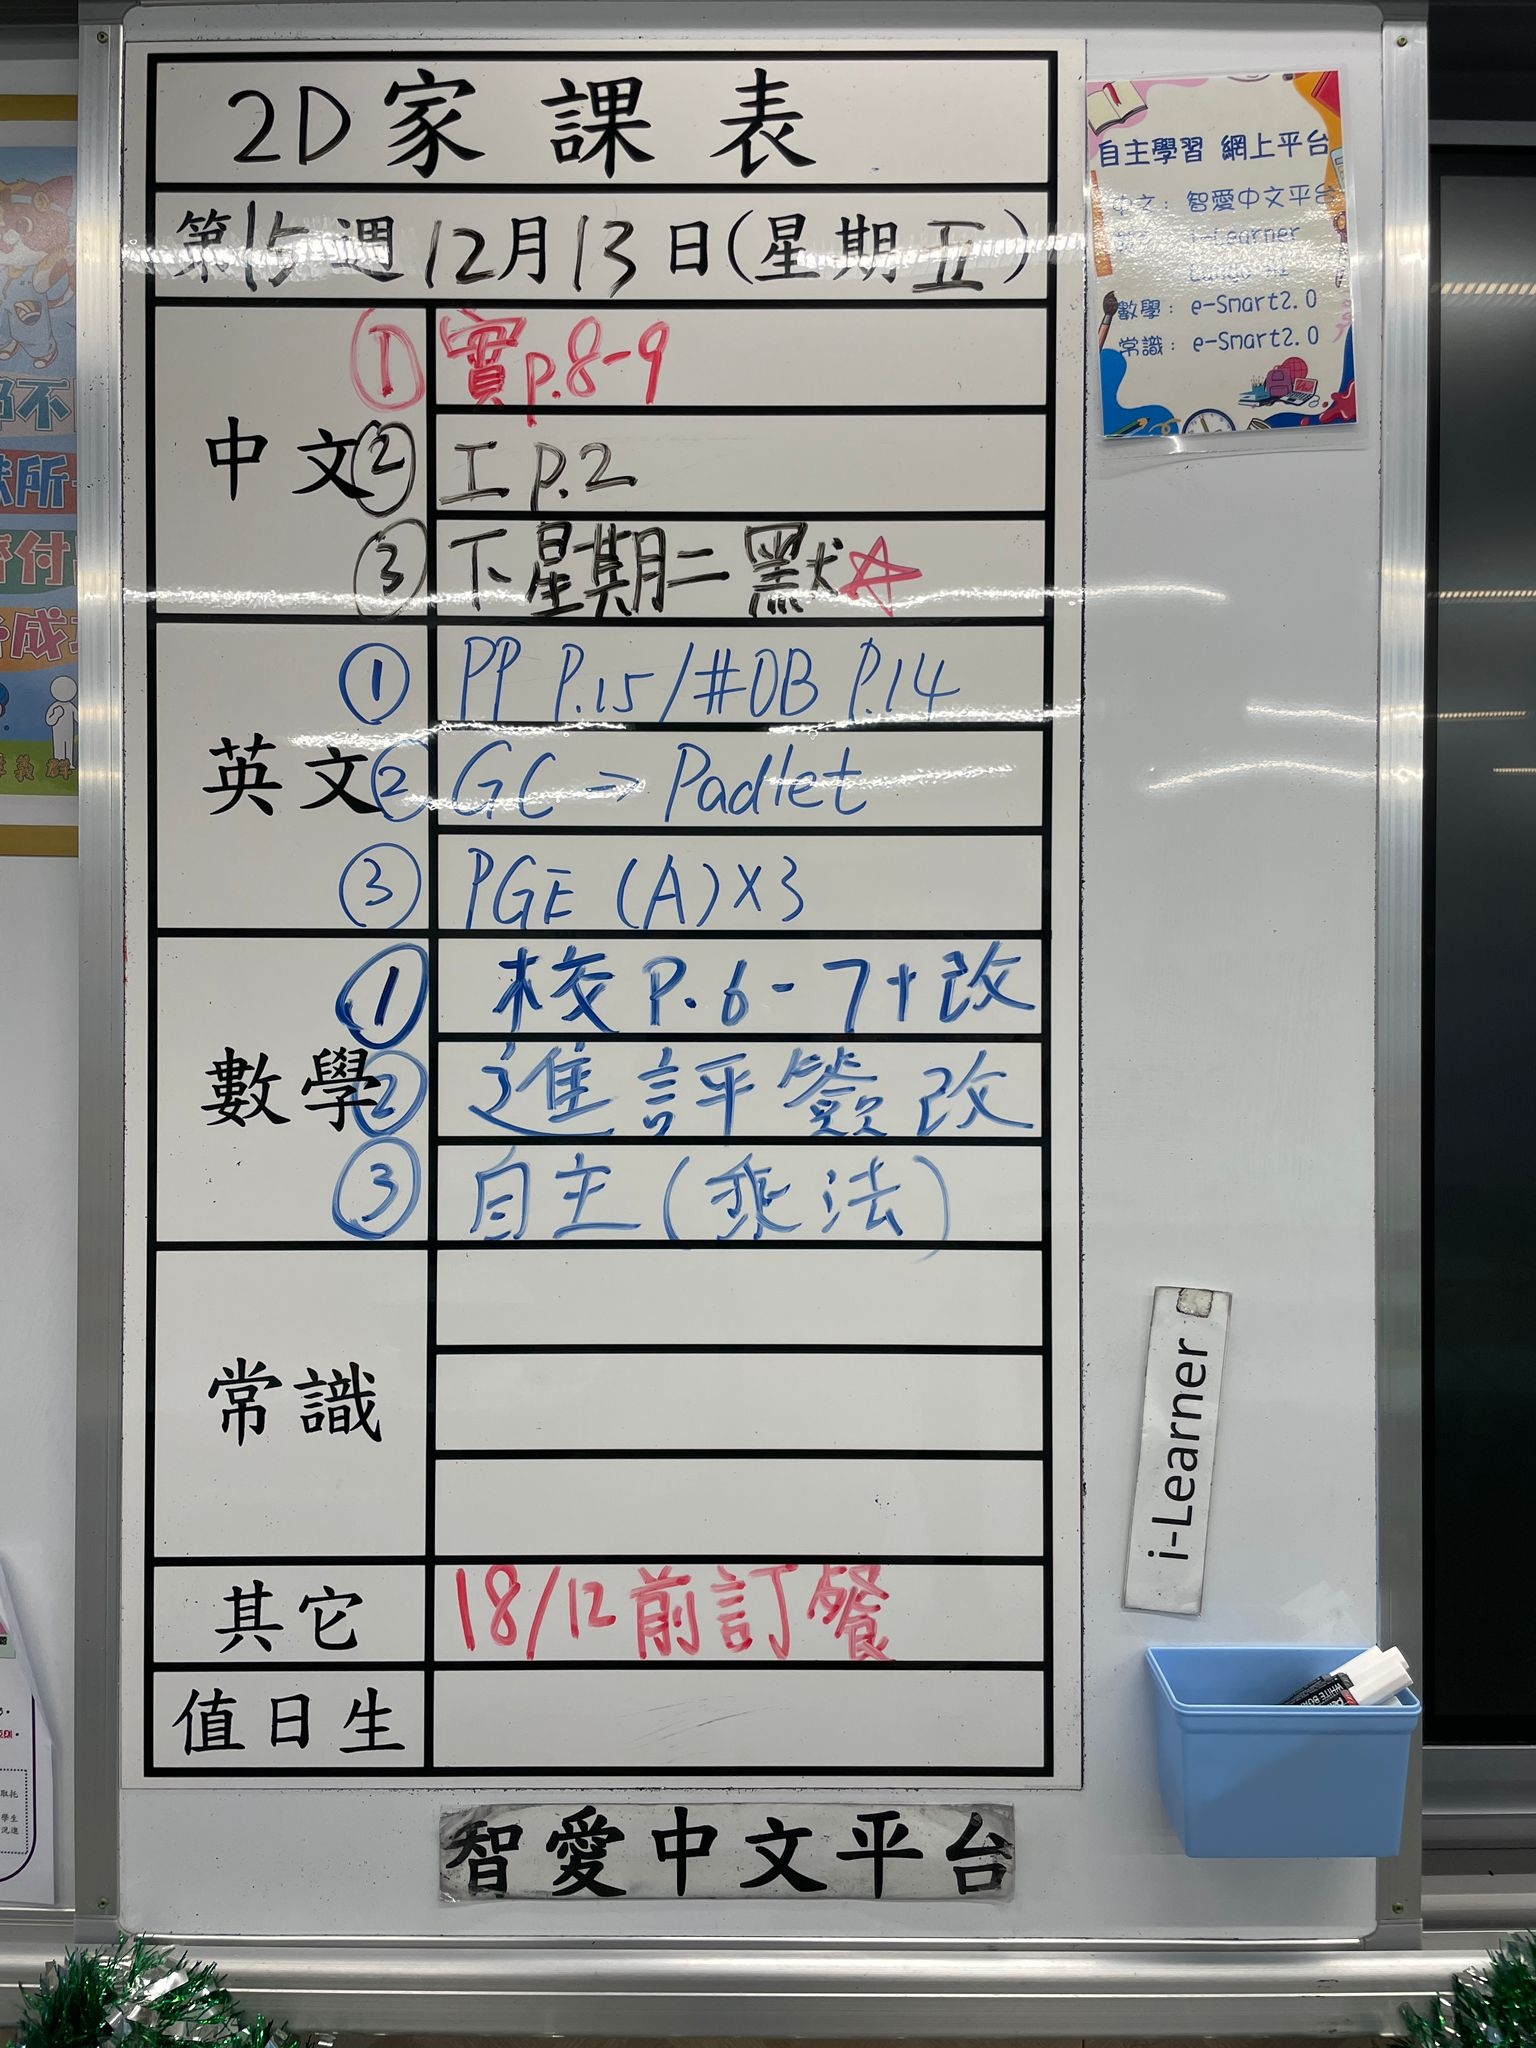 2D家課表
第15週12月13日(星期五)
中文
① 實p.8-9
② 工p.2
③ 下星期二默☆
英文
① PP P.15/#OB P.14
② GC → Padlet
③ PGE (A)x3
數學
① 校P.6-7+改
② 進評簽改
③ 自主(乘法)
常識
其它
18/12前訂餐
值日生
智愛中文平台
自主學習 網上平台
中文: 智愛中文平台
i-Learner
數學: e-Smart2.0
常識: e-Smart2.0
i-Learner